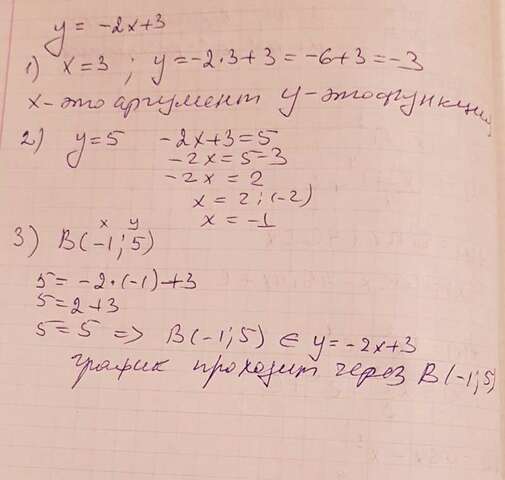 y = -2x+3
1) x=3 ; y=-2·3+3=-6+3=-3
x-это аргумент y-это функция
2) y=5 -2x+3=5
-2x=5-3
-2x = 2
x = 2:(-2)
x = -1
x y
3) B(-1;5)
5=-2·(-1)+3
5=2+3
5=5 => B(-1;5) ∈ y=-2x+3
график проходит через B(-1;5)